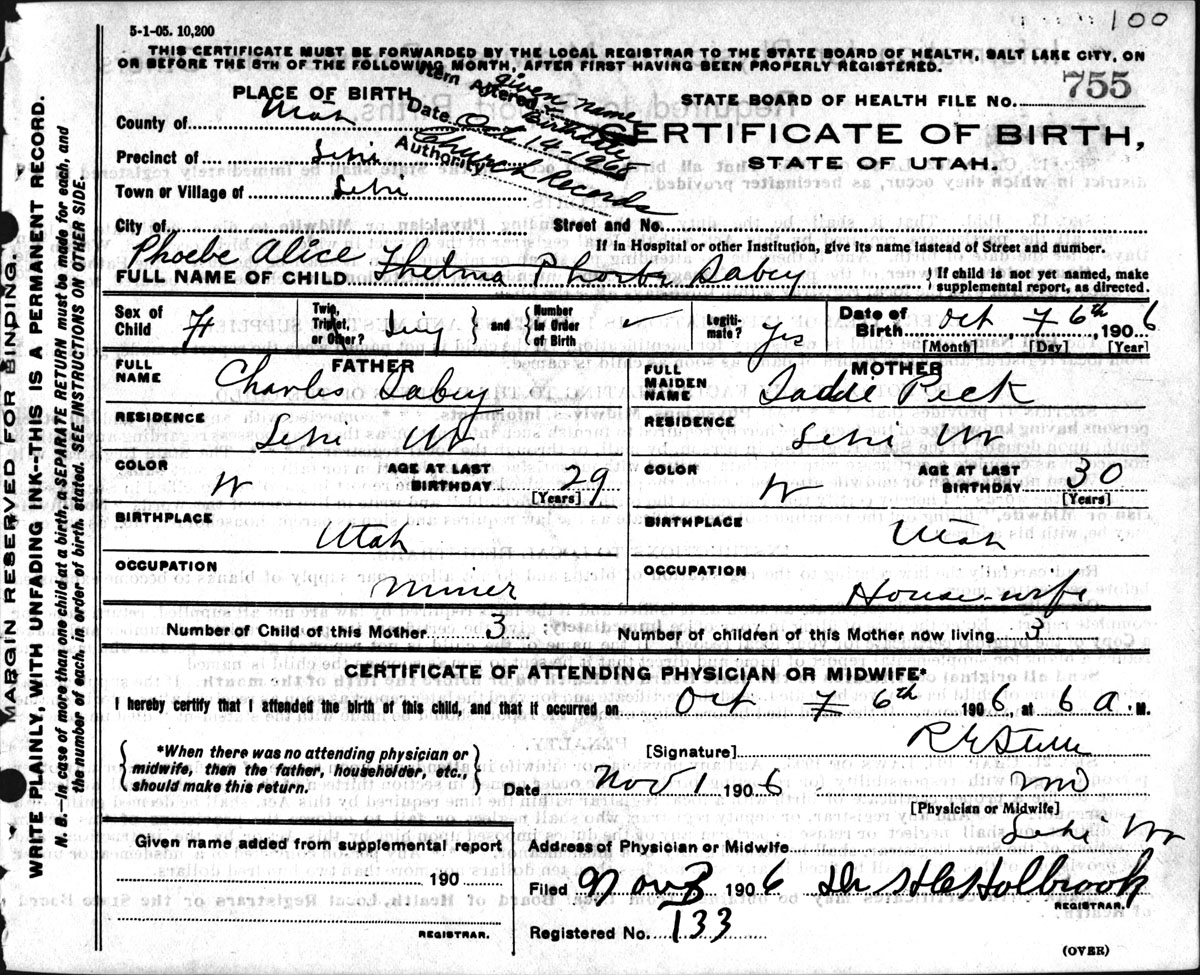 100
5-1-05. 10,200
THIS CERTIFICATE MUST BE FORWARDED BY THE LOCAL REGISTRAR TO THE STATE BOARD OF HEALTH, SALT LAKE CITY, ON
OR BEFORE THE 5TH OF THE FOLLOWING MONTH, AFTER FIRST HAVING BEEN PROPERLY REGISTERED.
Item Altered given name
Birthdate
Date Oct 14-1965
Authority Church Records
PLACE OF BIRTH
STATE BOARD OF HEALTH FILE NO. 755
County of Utah
CERTIFICATE OF BIRTH,
Precinct of Lehi
STATE OF UTAH.
Town or Village of Lehi
City of Street and No.
If in Hospital or other Institution, give its name instead of Street and number.
Phoebe Alice
FULL NAME OF CHILD Thelma Phoebe Sabey { If child is not yet named, make supplemental report, as directed.
Sex of Child F Twin, Triplet, or Other? and Number in Order of Birth ✓ Legitimate? yes Date of Birth Oct 7 6th 1906
[Month] [Day] [Year]
FATHER MOTHER
FULL NAME Charles Sabey FULL MAIDEN NAME Saddie Peck
RESIDENCE Lehi Ut RESIDENCE Lehi Ut
COLOR W AGE AT LAST BIRTHDAY 29 COLOR W AGE AT LAST BIRTHDAY 30
[Years] [Years]
BIRTHPLACE Utah BIRTHPLACE Utah
OCCUPATION Miner OCCUPATION House-wife
Number of Child of this Mother 3 Number of children of this Mother now living 3
CERTIFICATE OF ATTENDING PHYSICIAN OR MIDWIFE*
I hereby certify that I attended the birth of this child, and that it occurred on Oct 7 6th 1906 at 6 a. M.
*When there was no attending physician or midwife, then the father, householder, etc., should make this return.
[Signature]
Date Nov 1 1906 MD
[Physician or Midwife]
Given name added from supplemental report
190
REGISTRAR.
Address of Physician or Midwife Lehi Ut
Filed Nov 3 1906 Holbrook
REGISTRAR.
Registered No. 133
(OVER)
MARGIN RESERVED FOR BINDING.
WRITE PLAINLY, WITH UNFADING INK--THIS IS A PERMANENT RECORD.
N. B.--In case of more than one child at a birth, a SEPARATE RETURN must be made for each, and
the number of each, in order of birth, stated. SEE INSTRUCTIONS ON OTHER SIDE.